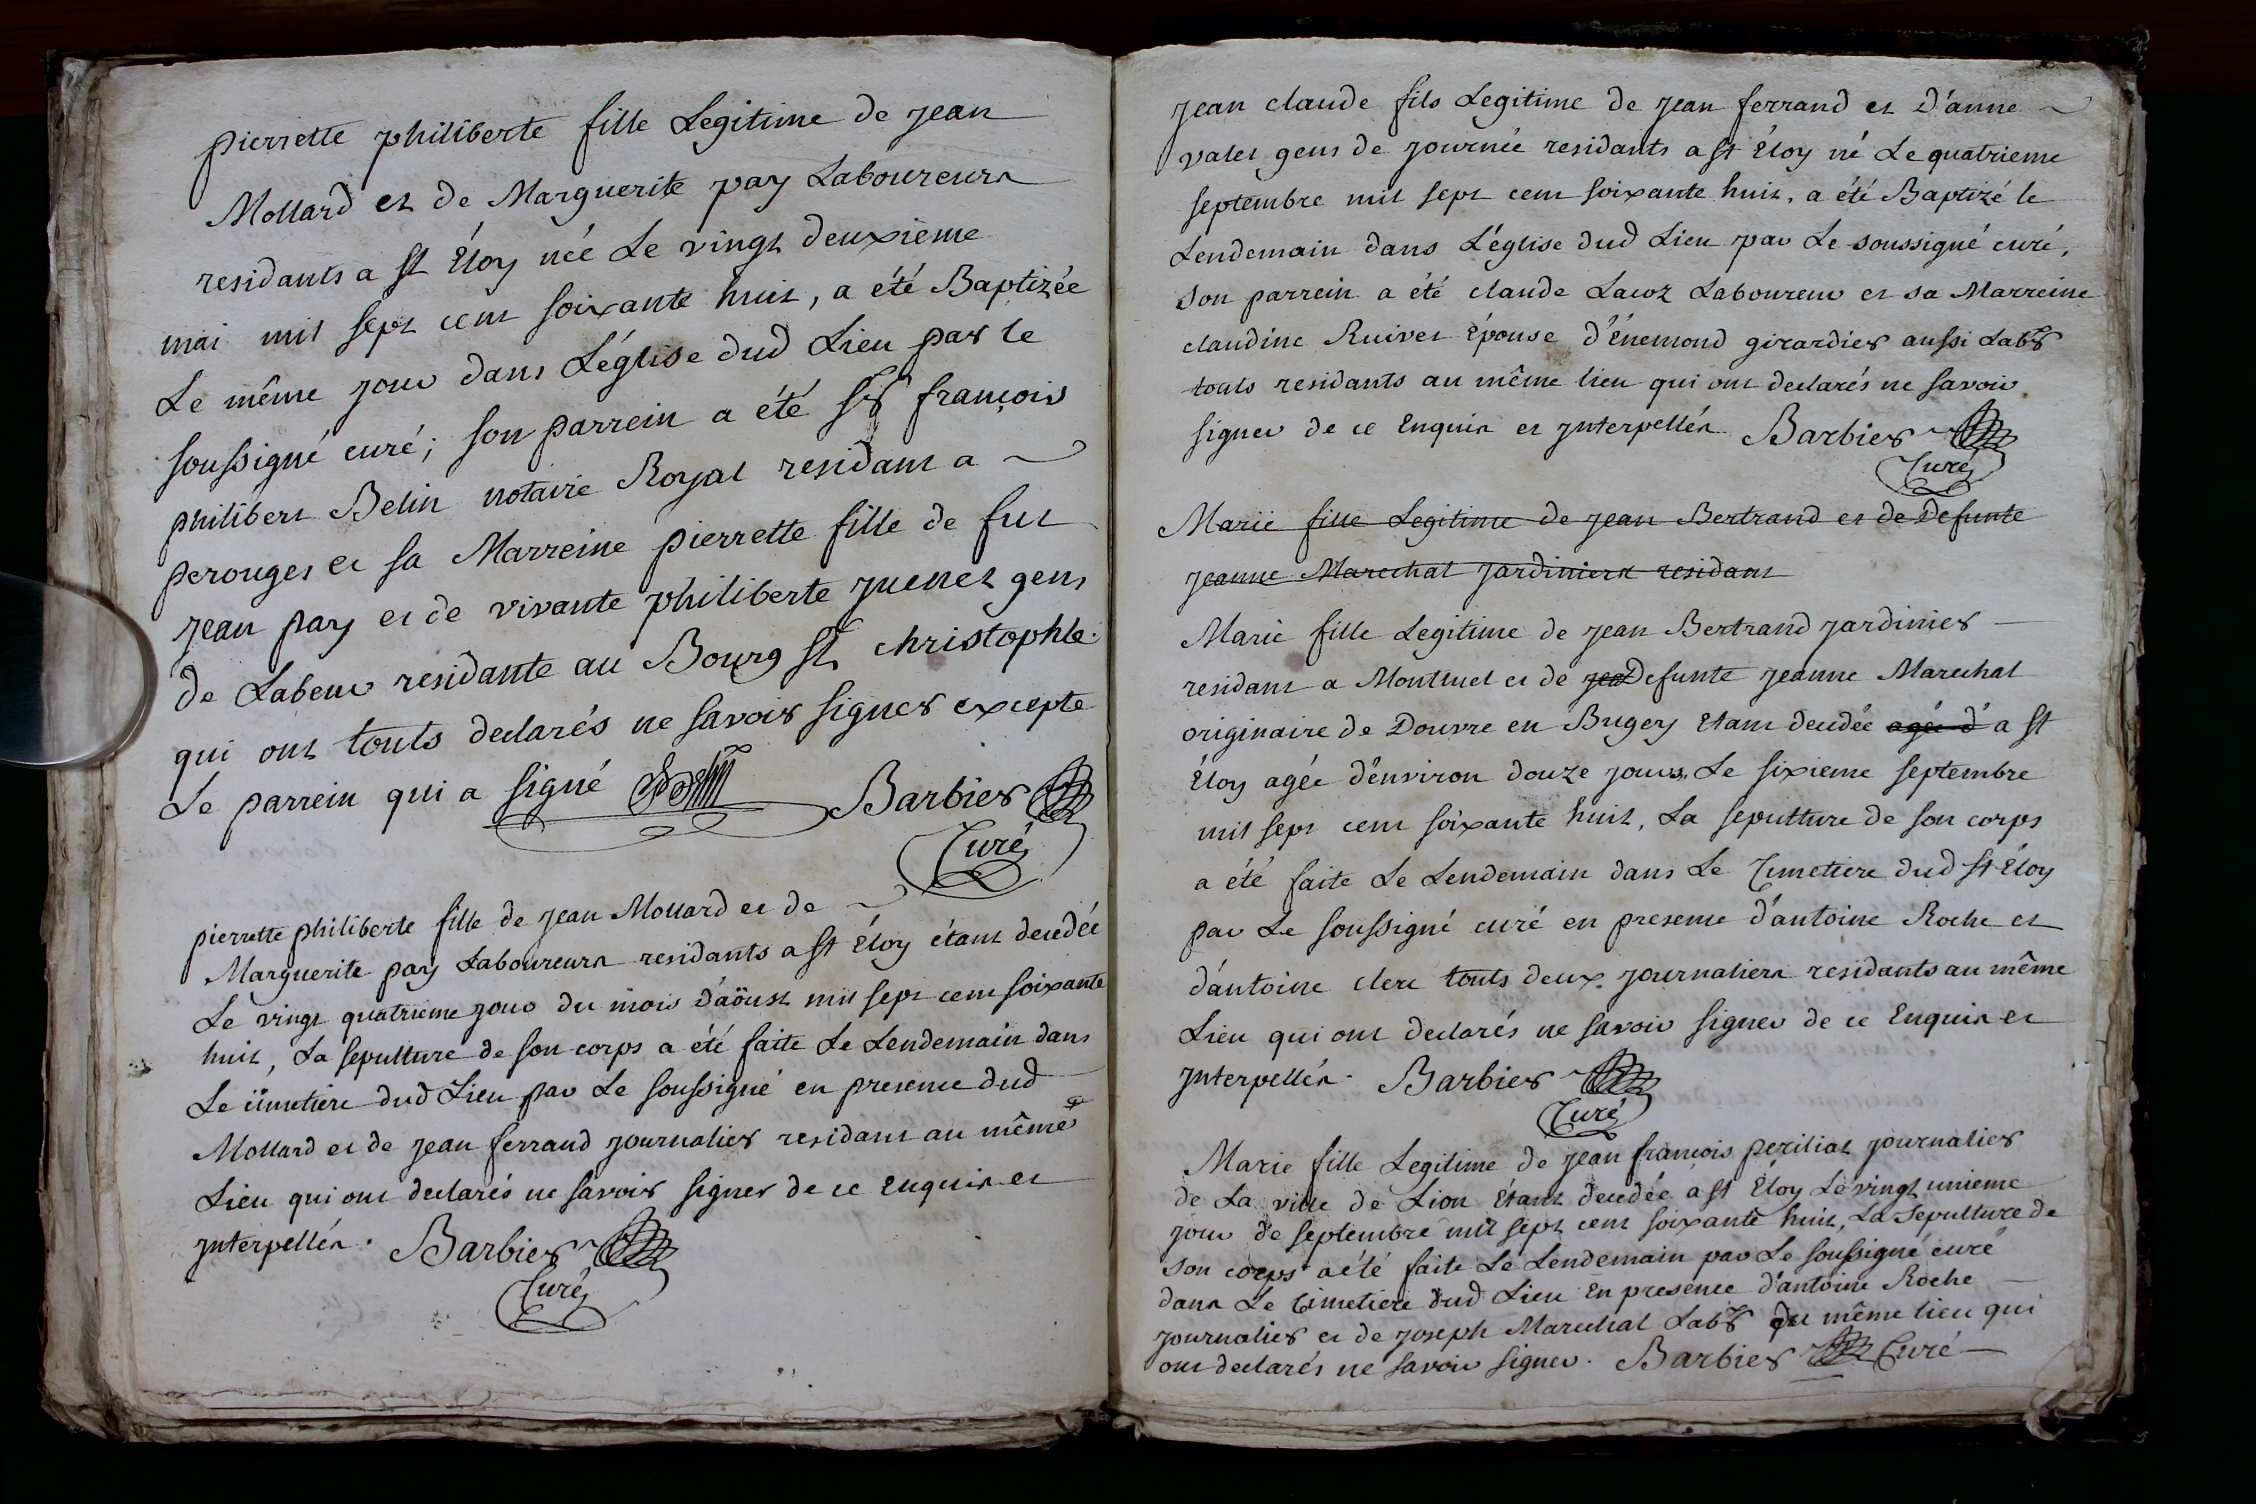 pierrette philiberte fille Legitime de jean
Mollard et de Marguerite pay Laboureurs
residants a St Éloy née Le vingt deuxieme
mai mil sept cent soixante huit, a été Baptizée
Le même jour dans L'église dud Lieu par le
soussigné curé; son parrein a été Sr françois
philibert Belin notaire Royal residant a
perouges et sa Marreine pierrette fille de fut
jean pay et de vivante philiberte juenet gens
de Labeur residante au Bourg St christophle.
qui ont touts declarés ne savoir signer excepte
Le parrein qui a signé Belin Barbier
Curé
pierrette philiberte fille de jean Mollard et de
Marguerite pay Laboureurs residants a St Éloy étant decedée
Le vingt quatrieme jour du mois d'aöust mil sept cent soixante
huit, La sepulture de son corps a été faite Le Lendemain dans
Le cimetiere dud Lieu par Le soussigné en presence dud
Mollard et de jean ferrand journalier residant au même
Lieu qui ont declarés ne savoir signer de ce Enquis et
jnterpellés. Barbier
Curé
jean claude fils Legitime de jean ferrand et D'anne
valet gens de journée residants a St Éloy né Le quatrieme
septembre mil sept cent soixante huit, a été Baptizé le
Lendemain dans L'église dud Lieu par Le soussigné curé,
son parrein a été claude Lacoz Laboureur et sa Marreine
claudine Ruivet Épouse d'énemond girardier aussi Labr
touts residants au même lieu qui ont declarés ne savoir
signer de ce Enquis et jnterpellés Barbier
Curé
Marie fille Legitime de jean Bertrand et de Defunte
jeanne Marechal jardiniers residant
Marie fille Legitime de jean Bertrand jardinier
residant a Montluel et de jea Defunte jeanne Marechal
originaire de Douvre en Bugey Etant decedée agée d' a St
Éloy agée d'environ douze jours, Le sixieme septembre
mil sept cent soixante huit, La sepulture de son corps
a été faite Le Lendemain dans Le Cimetiere dud St Éloy
par Le soussigné curé en presence d'antoine Roche et
d'antoine clerc touts deux journaliers residants au même
Lieu qui ont declarés ne savoir signer de ce Enquis et
jnterpellés. Barbier
Curé
Marie fille Legitime de jean françois periliat journalier
de La ville de Lion Étant decedée a St Éloy Le vingt unieme
jour de septembre mil sept cent soixante huit, La sepulture de
son corps a été faite Le Lendemain par Le soussigné curé
dans Le Cimetiere dud Lieu En presence d'antoine Roche
journalier et de joseph Marechal Labr du même lieu qui
ont declarés ne savoir signer. Barbier Curé